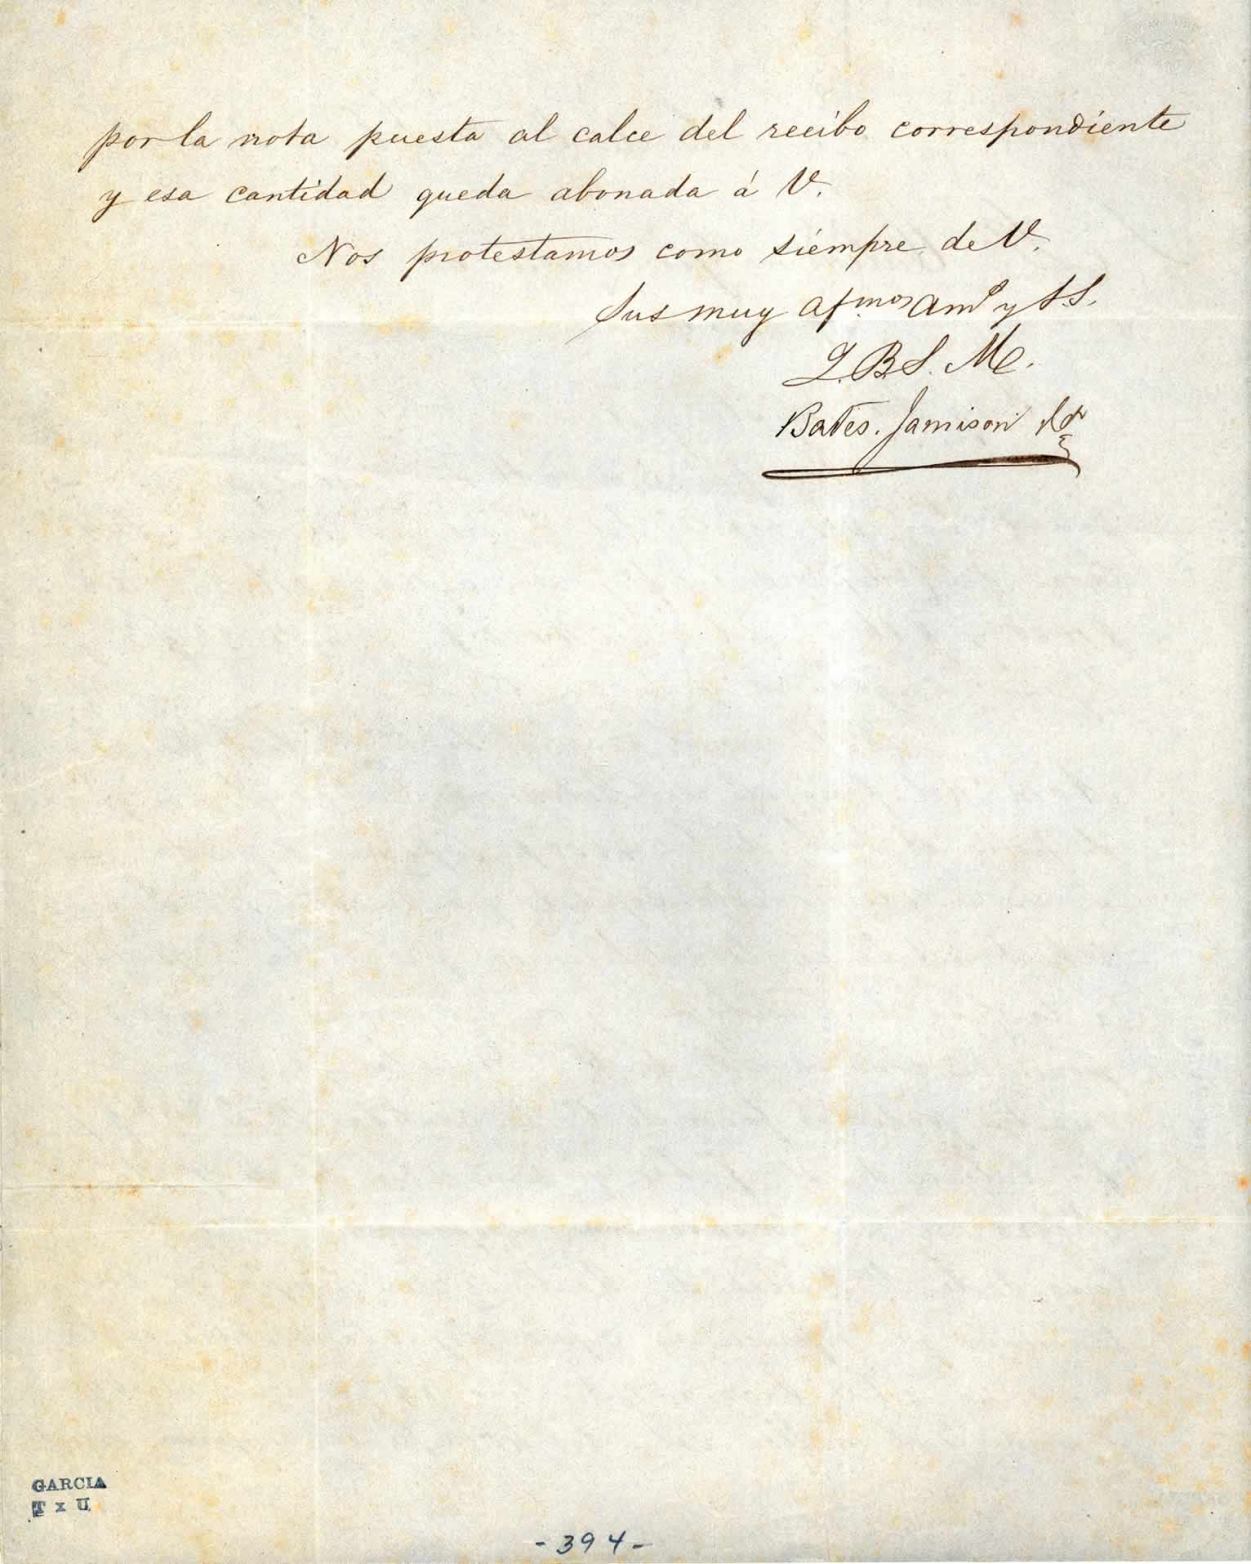 por la nota puesta al calce del recibo correspondiente
y esa cantidad queda abonada á V.
Nos protestamos como siempre de V.
Sus muy afmos amº y SS.
Q. B. S. M.
Bates. Jamison
GARCIA
T x U
- 394 -